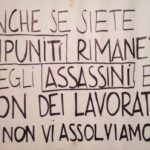 NCHE SE SIETE
MPUNITI RIMANETE
EGLI ASSASSINI E
ON DEI LAVORAT
NON VI ASSOLVIAMO